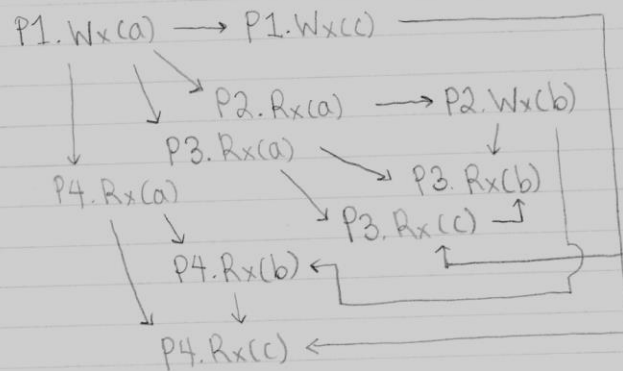 P1.Wx(a) → P1.Wx(c)
P2.Rx(a) → P2.Wx(b)
P3.Rx(a)
P3.Rx(b)
P4.Rx(a)
P3.Rx(c)
P4.Rx(b)
P4.Rx(c)